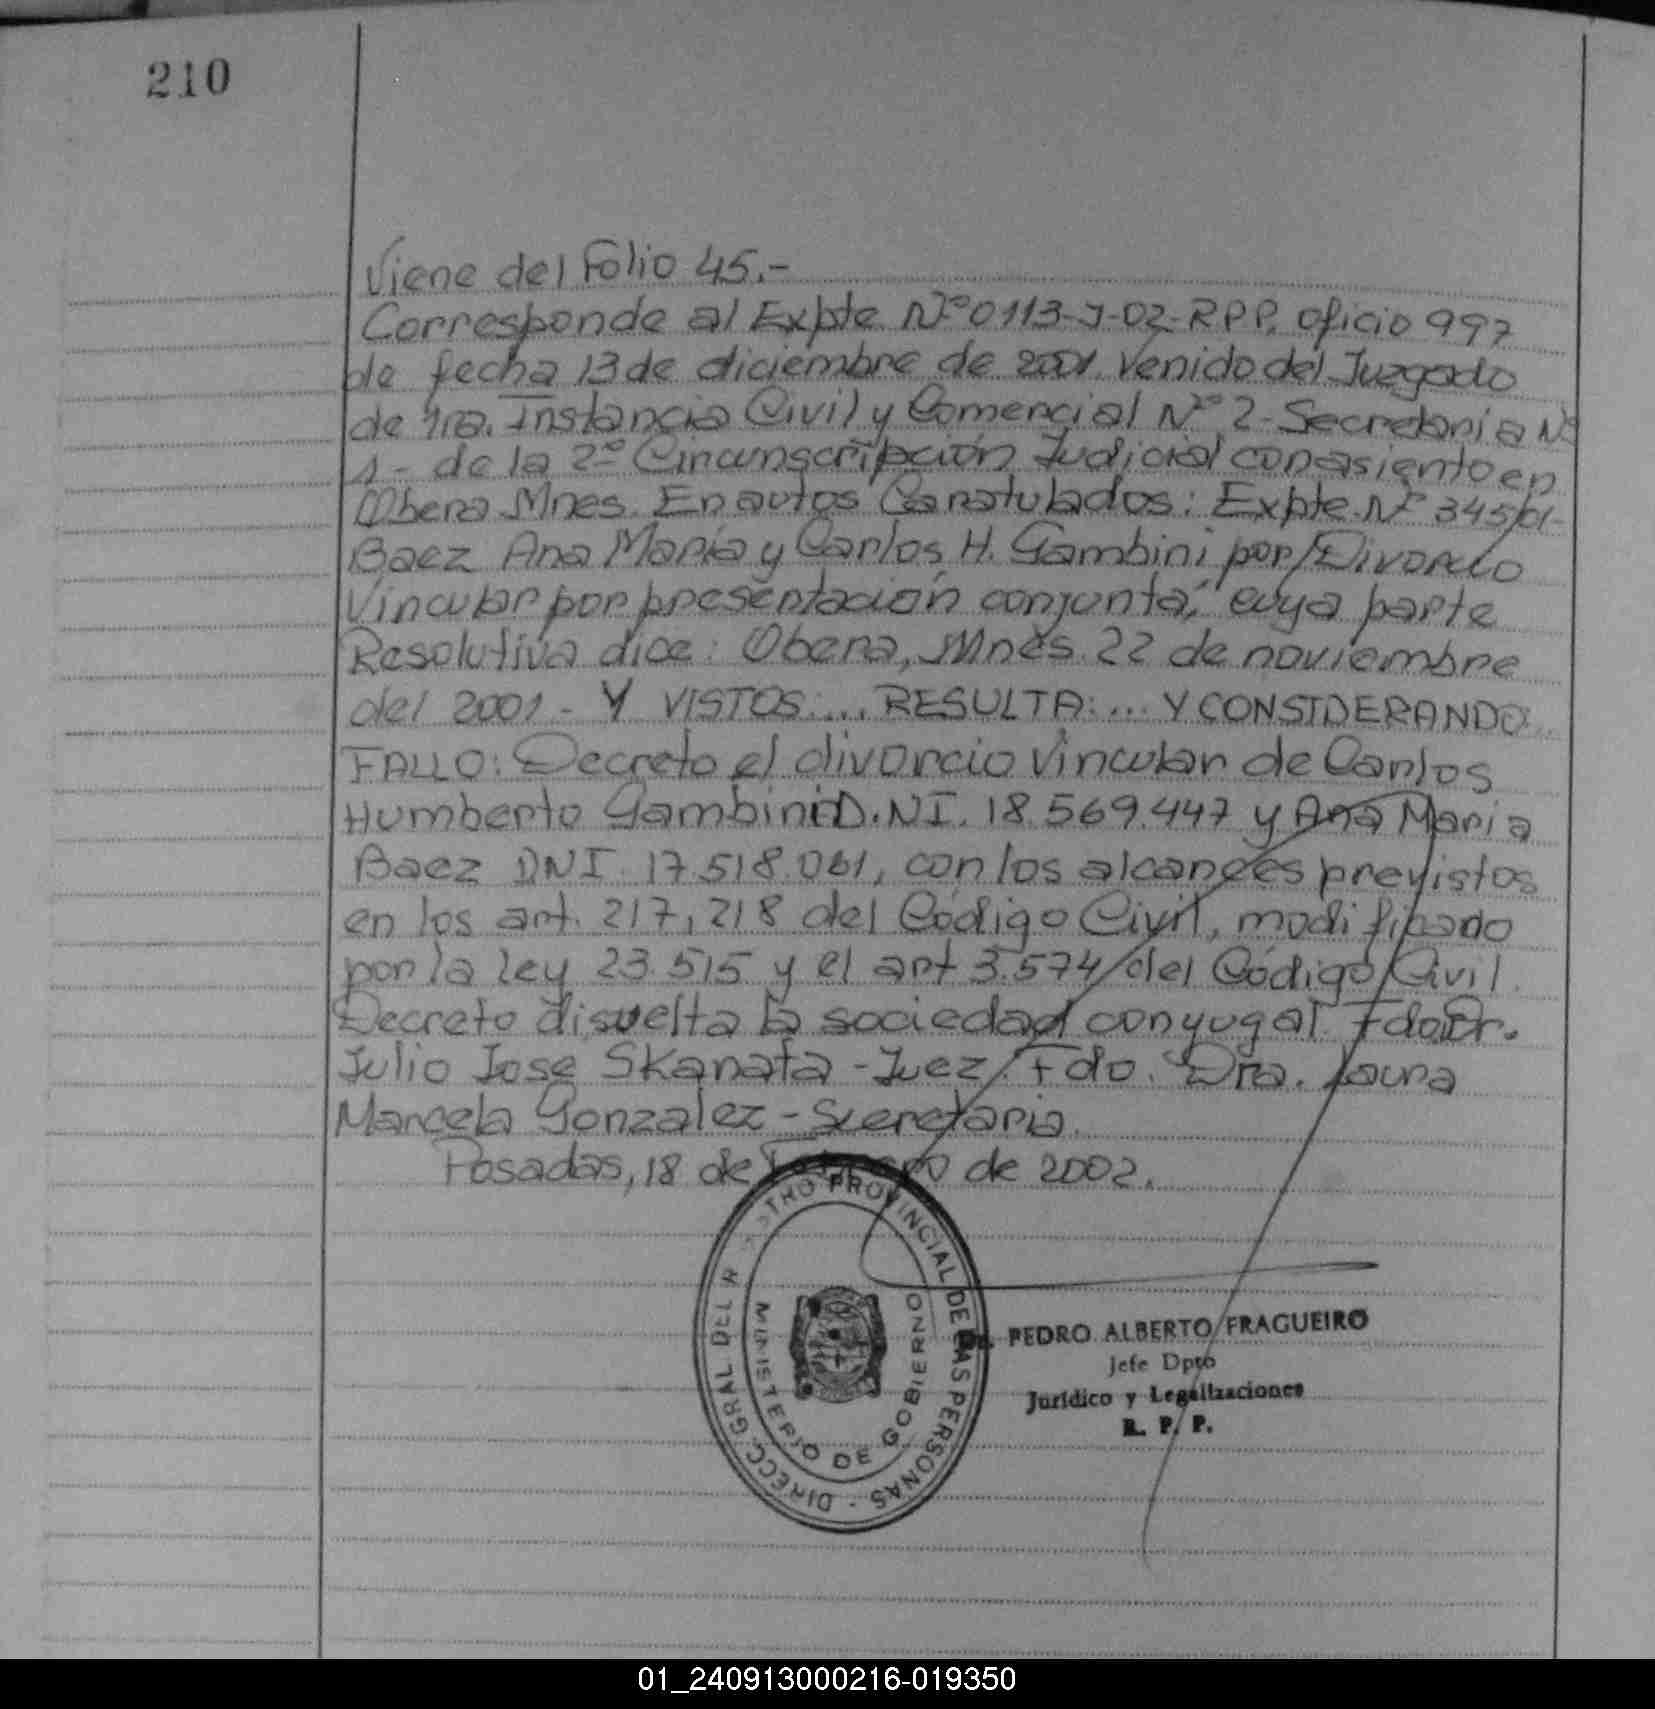 210
Viene del Folio 45.-
Corresponde al Expte Nº 0113-J-02-RPP, oficio 997
de fecha 13 de diciembre de 2001 venido del Juzgado
de 1ra. Instancia Civil y Comercial Nº 2-Secretaría Nº
1- de la 2º Circunscripción Judicial con asiento en
Obera Mnes. En autos Caratulados: Expte. Nº 345/01-
Baez Ana María y Carlos H. Gambini por/Divorcio
Vincular por presentación conjunta," cuya parte
Resolutiva dice: Obera, Mnes. 22 de noviembre
del 2001- Y VISTOS:... RESULTA:... Y CONSIDERANDO...
FALLO: Decreto el divorcio vincular de Carlos
Humberto Gambini D.NI. 18.569.447 y Ana Maria
Baez DNI 17.518.061, con los alcances previstos
en los art. 217, 218 del Código Civil, modificado
por la ley 23.515 y el art 3.574 del Código Civil.
Decreto disuelta la sociedad conyugal. Fdo. Dr.
Julio Jose Skanata -Juez. Fdo. Dra. Laura
Marcela Gonzalez - Secretaria.
Posadas, 18 de de 2002.
DIRECC. GRAL DEL R STRO PROVINCIAL DE LAS PERSONAS -
MINISTERIO DE GOBIERNO
PEDRO ALBERTO FRAGUEIRO
Jefe Dpto
Jurídico y Legalizaciones
R. P. P.
01_240913000216-019350